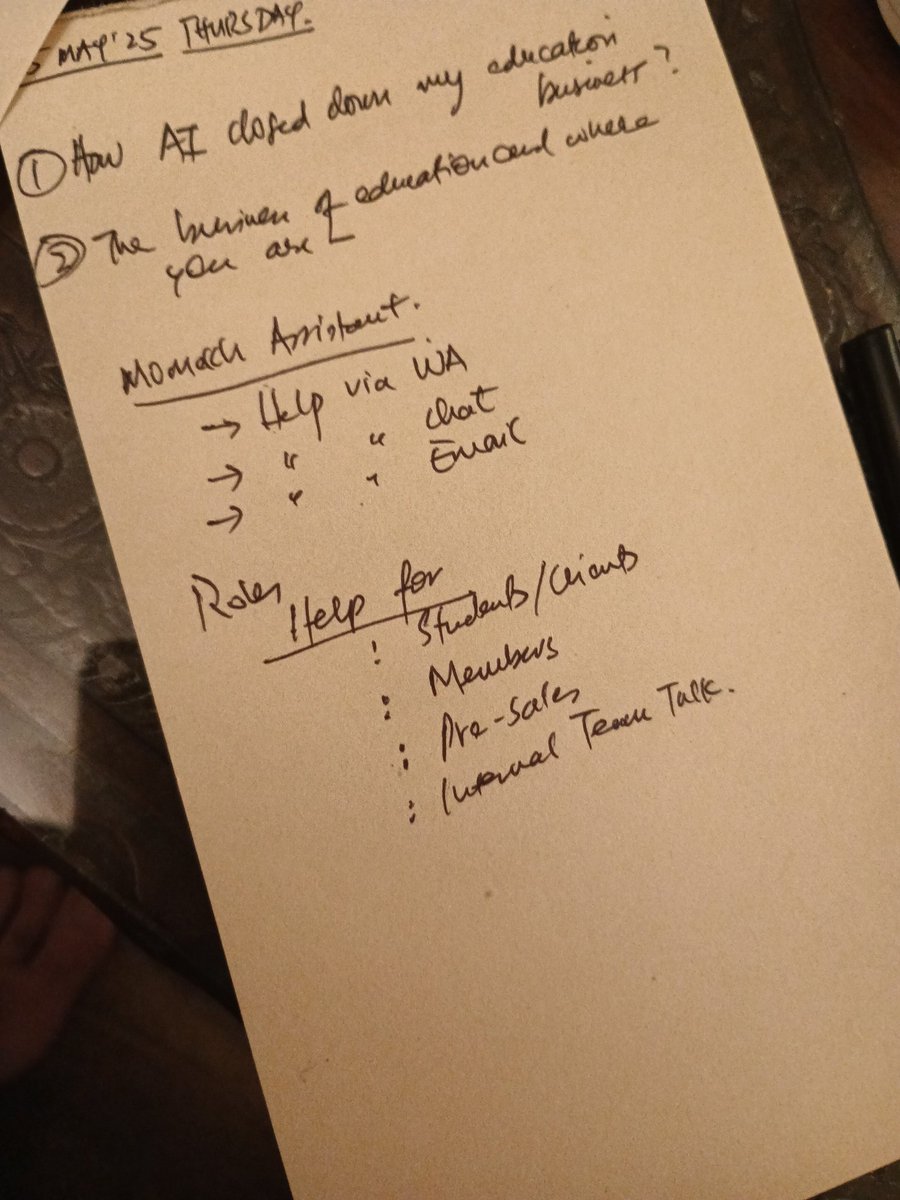 5 MAY'25 THURSDAY.
① How AI closed down my education
business?
② The business of education and where
you are
Momach Assistant.
→ Help via WA
→ " " chat
→ " " Email
Roles
Help for
: Students/Clients
: Members
: Pre-sales
: Internal Team Talk.